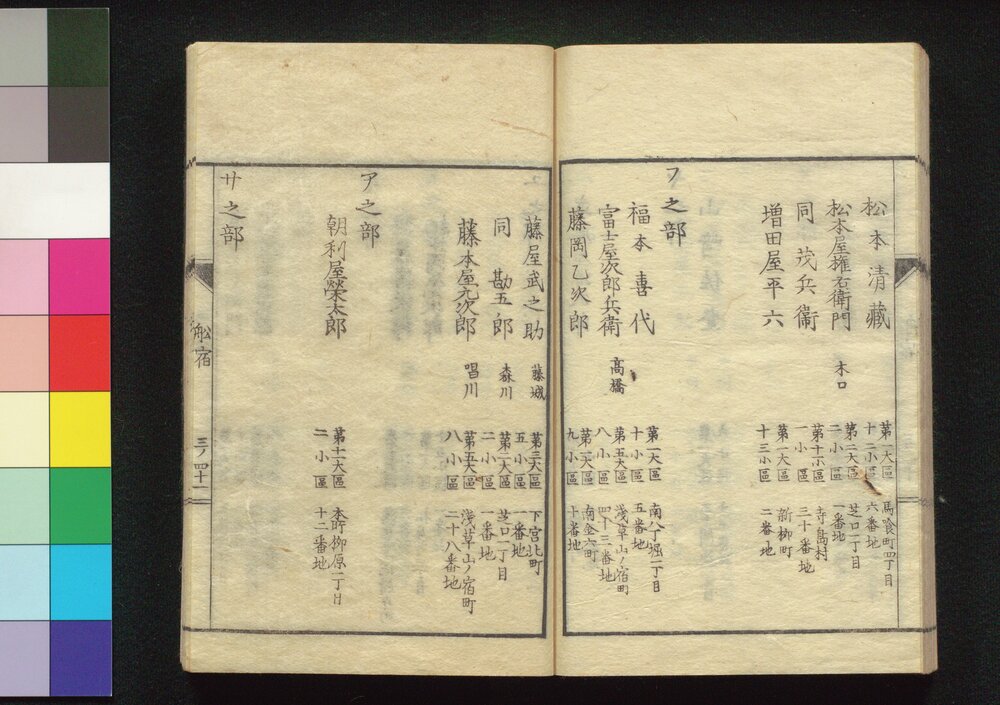 松本清藏
第一大區
十二小區
馬喰町四丁目
六番地
松本屋権右衛門
木口
第二大區
二小區
芝口二丁目
一番地
同茂兵衞
第十一大區
一小區
寺島村
三十番地
増田屋平六
第一大區
十三小區
新柳町
二番地
フ之部
福本喜代
第一大區
十小區
南八丁堀一丁目
五番地
富士屋次郎兵衛
高橋
第五大區
八小區
浅草山ノ宿町
四十三番地
藤岡乙次郎
九小區
南金六町
十番地
藤屋武之助
藤城
第三大區
五小區
下宮比町
一番地
同勘五郎
森川
第二大區
二小區
芝口一丁目
一番地
藤本屋元次郎
唱川
第五大區
八小區
浅草山ノ宿町
二十八番地
ア之部
朝利屋榮太郎
第十一大區
二小區
本所柳原一丁目
十二番地
サ之部
舩宿
三ノ四十一